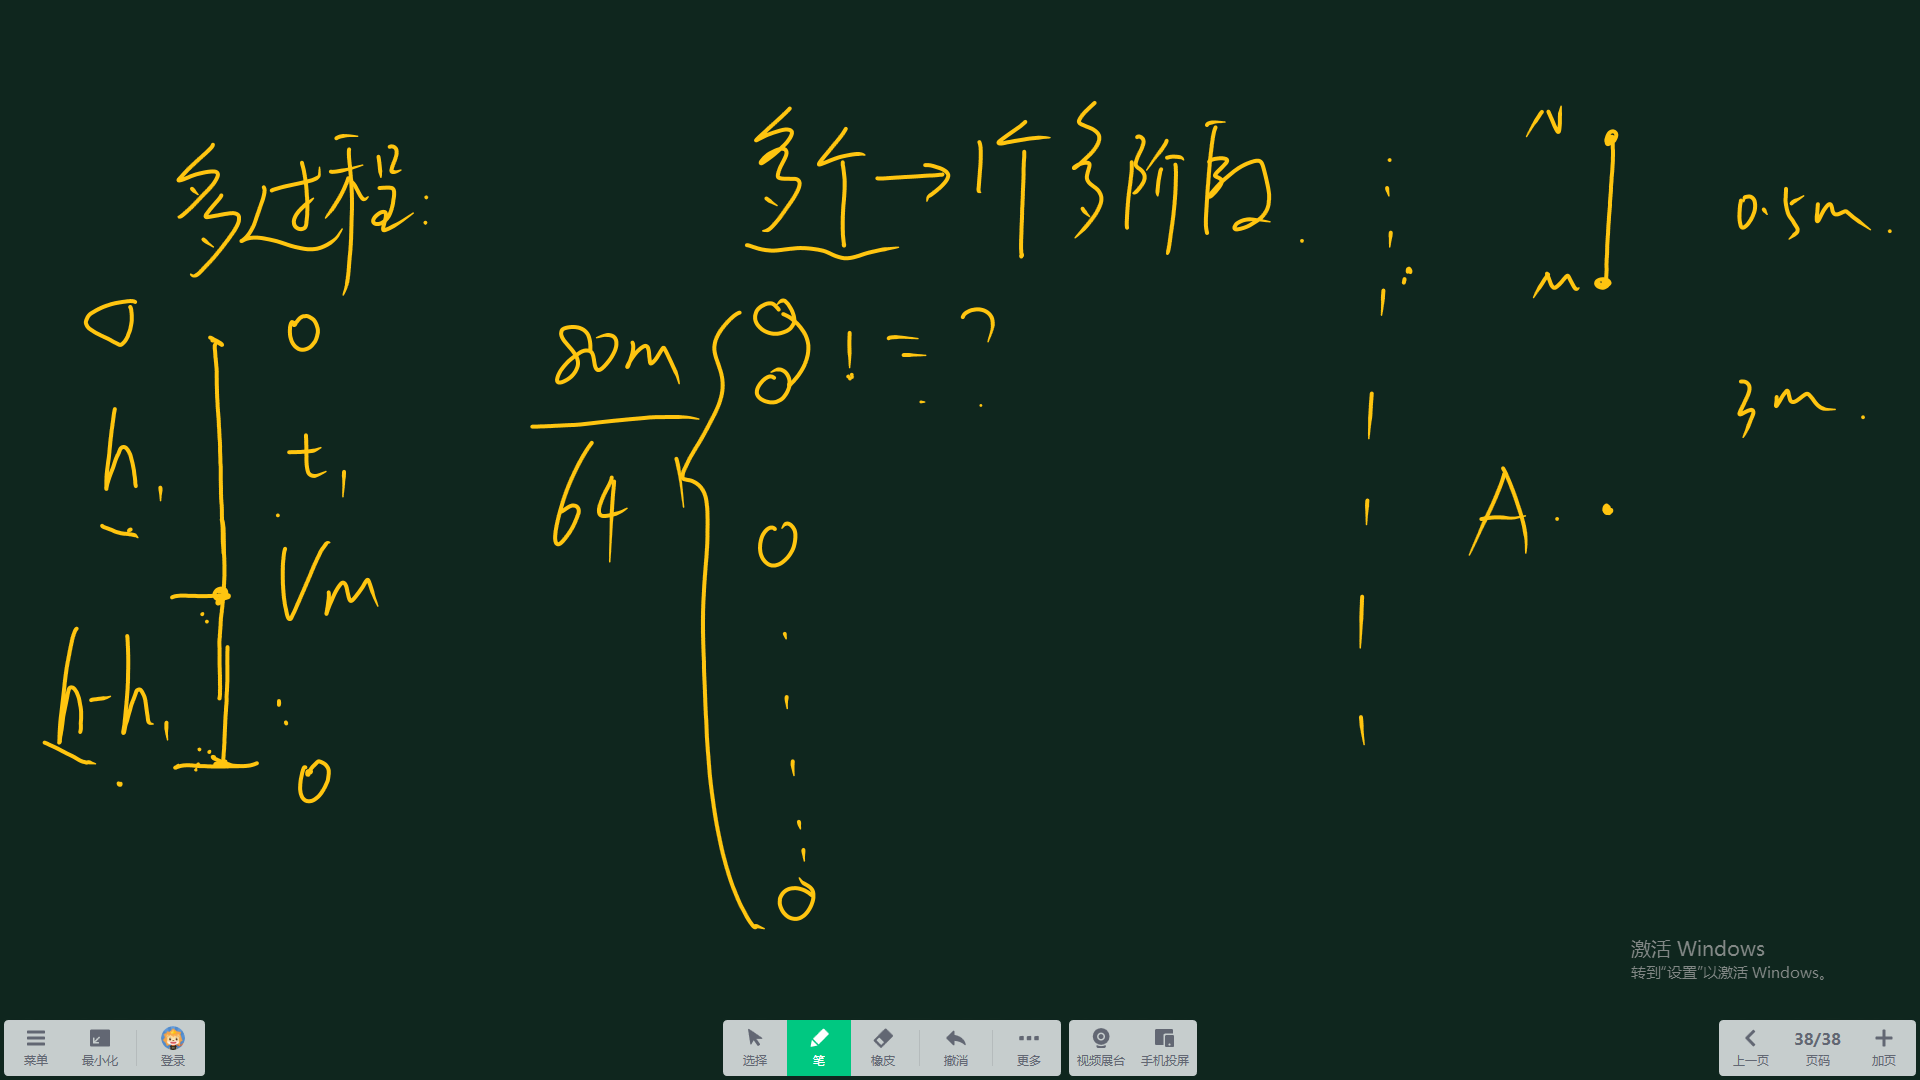 多过程:
0
h₁
t₁
Vm
h-h₁
0
多个→1个多阶段.
80m
64
! = ?
N
M
0.5m.
3m.
A.
激活 Windows
转到“设置”以激活 Windows。
菜单
最小化
登录
选择
笔
橡皮
撤消
更多
视频展台
手机投屏
上一页
38/38
页码
加页